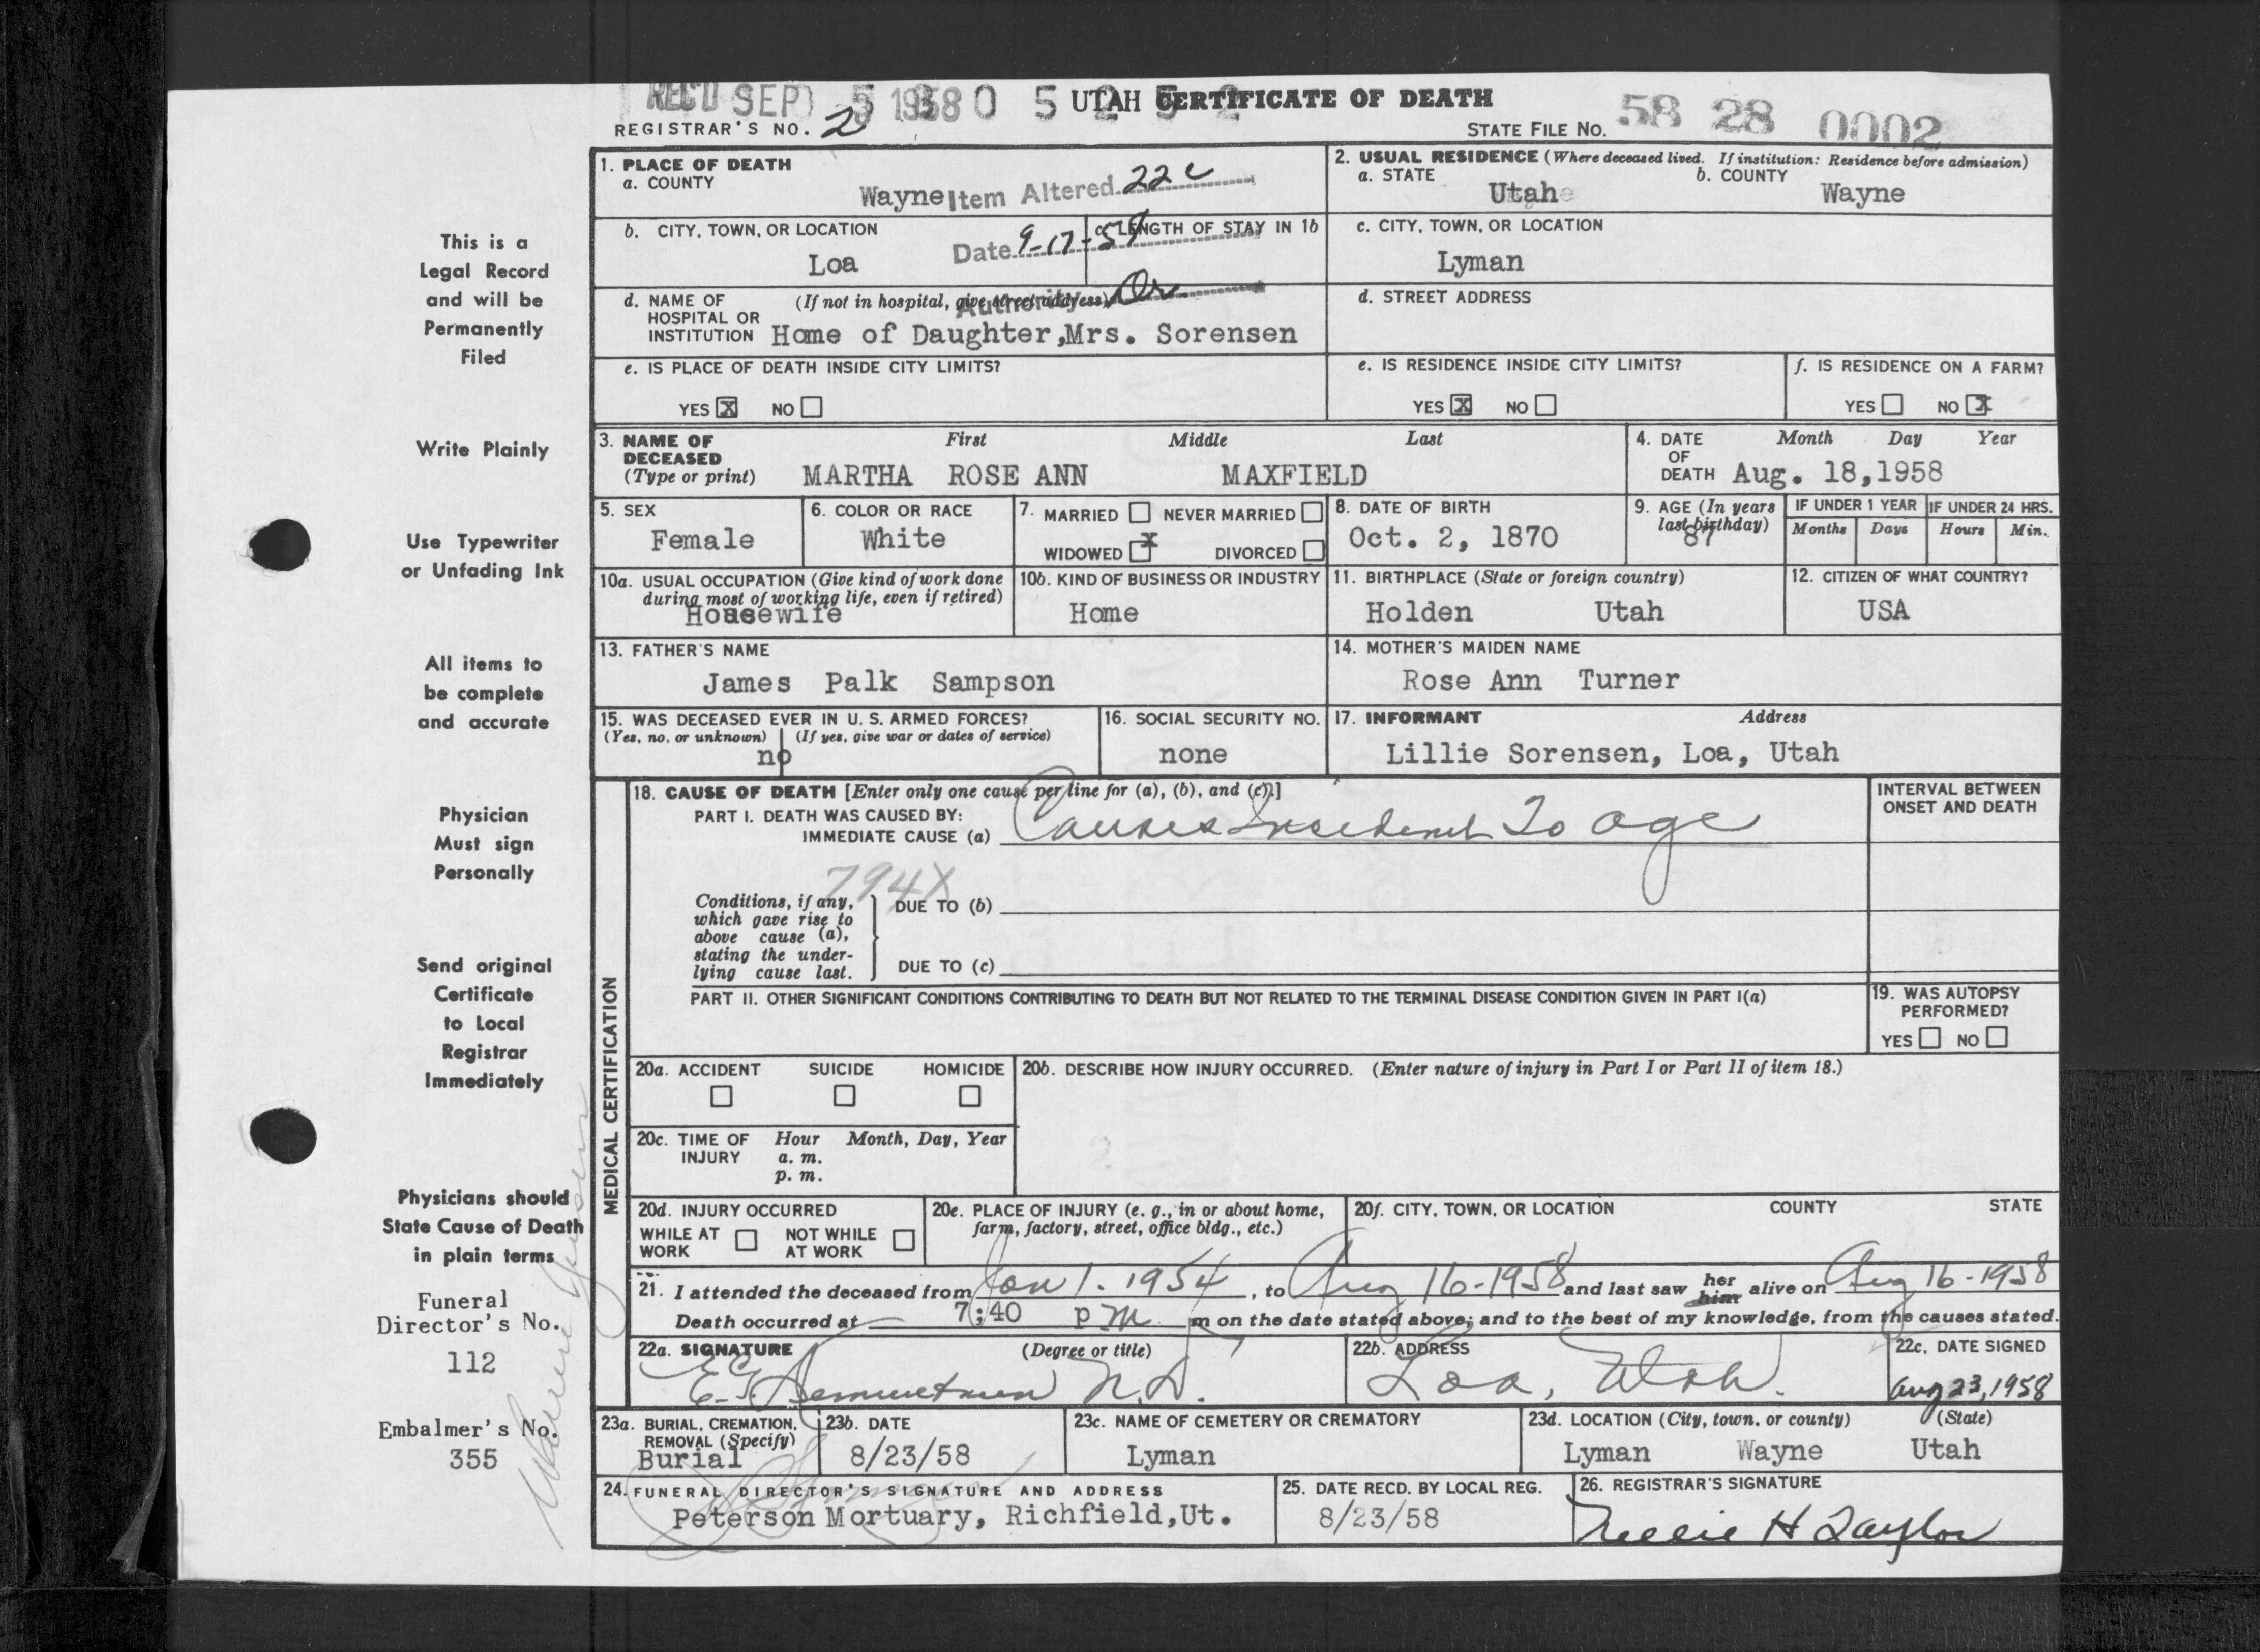 REC'D SEP 5 1958 0 5 2 5 2 UTAH CERTIFICATE OF DEATH
REGISTRAR'S NO. 2
STATE FILE NO. 58 28 0002
1. PLACE OF DEATH
a. COUNTY
Wayne
Item Altered 22c
2. USUAL RESIDENCE (Where deceased lived. If institution: Residence before admission)
a. STATE
Utah
b. COUNTY
Wayne
b. CITY, TOWN, OR LOCATION
Loa
Date 9-17-59
c. LENGTH OF STAY IN 1b
c. CITY, TOWN, OR LOCATION
Lyman
d. NAME OF HOSPITAL OR INSTITUTION
(If not in hospital, give street address)
Authority Dr.
Home of Daughter,Mrs. Sorensen
d. STREET ADDRESS
e. IS PLACE OF DEATH INSIDE CITY LIMITS?
YES X NO
e. IS RESIDENCE INSIDE CITY LIMITS?
YES X NO
f. IS RESIDENCE ON A FARM?
YES NO X
3. NAME OF DECEASED
(Type or print)
First Middle Last
MARTHA ROSE ANN MAXFIELD
4. DATE OF DEATH
Month Day Year
Aug. 18,1958
5. SEX
Female
6. COLOR OR RACE
White
7. MARRIED NEVER MARRIED
WIDOWED X DIVORCED
8. DATE OF BIRTH
Oct. 2, 1870
9. AGE (In years last birthday)
87
IF UNDER 1 YEAR
Months Days
IF UNDER 24 HRS.
Hours Min.
10a. USUAL OCCUPATION (Give kind of work done
during most of working life, even if retired)
Housewife
10b. KIND OF BUSINESS OR INDUSTRY
Home
11. BIRTHPLACE (State or foreign country)
Holden Utah
12. CITIZEN OF WHAT COUNTRY?
USA
13. FATHER'S NAME
James Palk Sampson
14. MOTHER'S MAIDEN NAME
Rose Ann Turner
15. WAS DECEASED EVER IN U. S. ARMED FORCES?
(Yes, no, or unknown) (If yes, give war or dates of service)
no
16. SOCIAL SECURITY NO.
none
17. INFORMANT Address
Lillie Sorensen, Loa, Utah
MEDICAL CERTIFICATION
18. CAUSE OF DEATH [Enter only one cause per line for (a), (b), and (c).]
PART I. DEATH WAS CAUSED BY:
IMMEDIATE CAUSE (a) Causes Incident To age
INTERVAL BETWEEN
ONSET AND DEATH
794X
Conditions, if any,
which gave rise to
above cause (a),
stating the under-
lying cause last.
DUE TO (b)
DUE TO (c)
PART II. OTHER SIGNIFICANT CONDITIONS CONTRIBUTING TO DEATH BUT NOT RELATED TO THE TERMINAL DISEASE CONDITION GIVEN IN PART I(a)
19. WAS AUTOPSY PERFORMED?
YES NO
20a. ACCIDENT SUICIDE HOMICIDE
20b. DESCRIBE HOW INJURY OCCURRED. (Enter nature of injury in Part I or Part II of item 18.)
20c. TIME OF INJURY
Hour Month, Day, Year
a. m.
p. m.
20d. INJURY OCCURRED
WHILE AT WORK
NOT WHILE AT WORK
20e. PLACE OF INJURY (e. g., in or about home,
farm, factory, street, office bldg., etc.)
20f. CITY, TOWN, OR LOCATION COUNTY STATE
21. I attended the deceased from Jan 1. 1954, to Aug 16-1958 and last saw her him alive on Aug 16-1958
Death occurred at 7:40 p m m on the date stated above; and to the best of my knowledge, from the causes stated.
22a. SIGNATURE (Degree or title)
M.D.
22b. ADDRESS
Loa, Utah.
22c. DATE SIGNED
Aug 23, 1958
23a. BURIAL, CREMATION,
REMOVAL (Specify)
Burial
23b. DATE
8/23/58
23c. NAME OF CEMETERY OR CREMATORY
Lyman
23d. LOCATION (City, town, or county) (State)
Lyman Wayne Utah
24. FUNERAL DIRECTOR'S SIGNATURE AND ADDRESS
Peterson Mortuary, Richfield,Ut.
25. DATE RECD. BY LOCAL REG.
8/23/58
26. REGISTRAR'S SIGNATURE
Nellie H Taylor
This is a
Legal Record
and will be
Permanently
Filed
Write Plainly
Use Typewriter
or Unfading Ink
All items to
be complete
and accurate
Physician
Must sign
Personally
Send original
Certificate
to Local
Registrar
Immediately
Physicians should
State Cause of Death
in plain terms
Funeral
Director's No.
112
Embalmer's No.
355